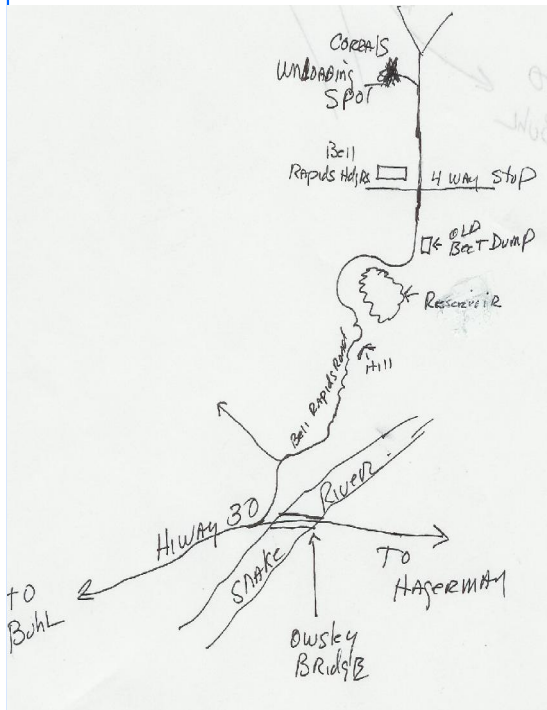 CORRALS
UNLOADING
SPOT
Bell
Rapids Hdqtrs
4 WAY STOP
OLD
BEET DUMP
RESERVOIR
Hill
Bell RAPIDS ROAD
HIWAY 30
RIVER
SNAKE
TO
HAGERMAN
TO
BuhL
OWSLEY
BRIDGE